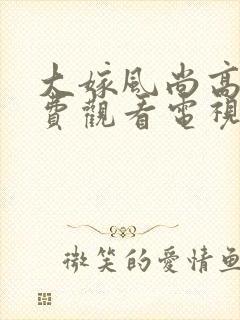 大嫁風尚高
費觀看電視
微笑的愛情魚